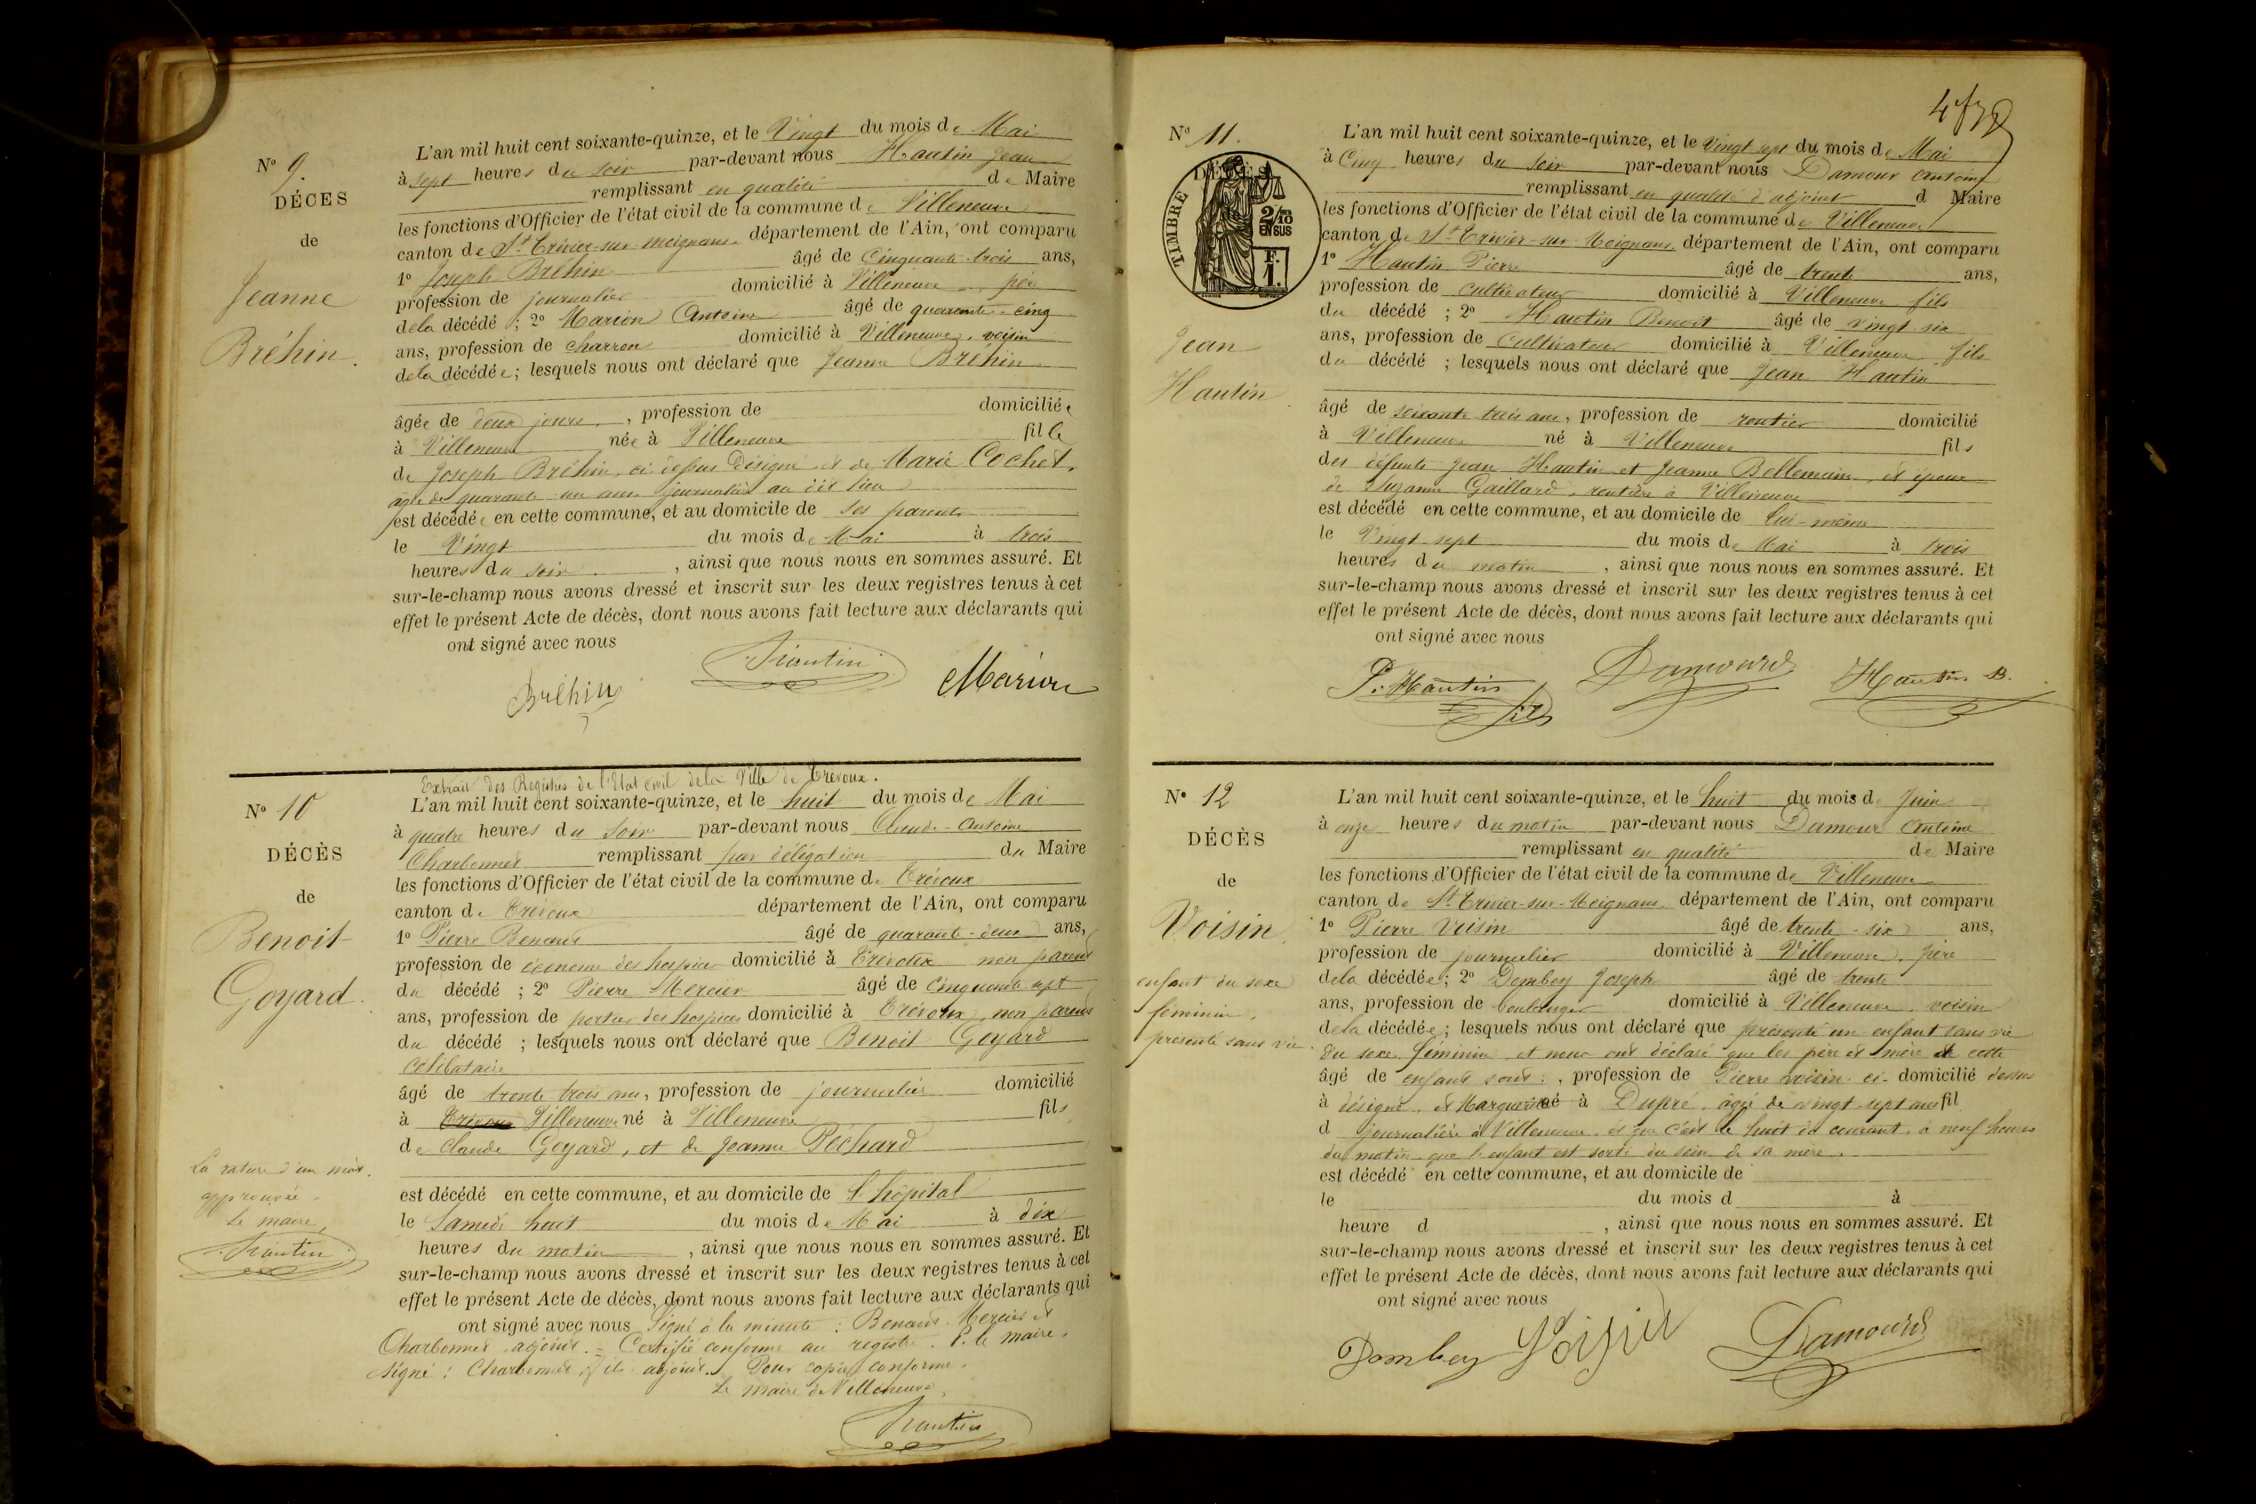 N° 9.
DÉCES
de
Jeanne
Bréhin.
L'an mil huit cent soixante-quinze, et le Vingt du mois de Mai
à sept heures du soir par-devant nous Hautin Jean
remplissant en qualité de Maire
les fonctions d'Officier de l'état civil de la commune de Villeneuve
canton de St Trivier-sur-Moignans département de l'Ain, ont comparu
1° Joseph Bréhin âgé de Cinquante-trois ans,
profession de journalier domicilié à Villeneuve père
de la décédé ; 2° Marion Antoine âgé de quarante-cinq
ans, profession de charron domicilié à Villeneuve, voisin
de la décédée ; lesquels nous ont déclaré que Jeanne Bréhin
âgée de deux jours, profession de domiciliée
à Villeneuve née à Villeneuve fille
de Joseph Bréhin, ci dessus désigné et de Marie Cochet,
âgée de quarante un ans journalière au dit lieu
est décédée en cette commune, et au domicile de ses parents
le Vingt du mois de Mai à trois
heures du soir, ainsi que nous nous en sommes assuré. Et
sur-le-champ nous avons dressé et inscrit sur les deux registres tenus à cet
effet le présent Acte de décès, dont nous avons fait lecture aux déclarants qui
ont signé avec nous
Bréhin Hautin Marion
N° 10
DÉCÈS
de
Benoit
Goyard.
La rature d'un mot
approuvée.
Le maire,
Hautin
Extrait des Registres de l'Etat civil de la Ville de Trévoux.
L'an mil huit cent soixante-quinze, et le huit du mois de Mai
à quatre heures du soir par-devant nous Claude-Antoine
Charbonnet remplissant par délégation du Maire
les fonctions d'Officier de l'état civil de la commune de Trévoux
canton de Trévoux département de l'Ain, ont comparu
1° Pierre Benand âgé de quarante-deux ans,
profession de économe des hospices domicilié à Trévoux non parent
du décédé ; 2° Pierre Mercier âgé de cinquante sept
ans, profession de portier des hospices domicilié à Trévoux, non parent
du décédé ; lesquels nous ont déclaré que Benoit Goyard
célibataire
âgé de trente trois ans, profession de journalier domicilié
à Trévoux Villeneuve né à Villeneuve fils
de Claude Goyard, et de Jeanne Péchard
est décédé en cette commune, et au domicile de l'hôpital
le Samedi huit du mois de Mai à dix
heures du matin, ainsi que nous nous en sommes assuré. Et
sur-le-champ nous avons dressé et inscrit sur les deux registres tenus à cet
effet le présent Acte de décès, dont nous avons fait lecture aux déclarants qui
ont signé avec nous Signé à la minute : Benand. Mercier et
Charbonnet adjoint. = Certifié conforme au registre. P. le maire.
signé : Charbonnet fils adjoint. Pour copie conforme.
Le maire de Villeneuve,
Hautin
N° 11.
DÉCÈS
TIMBRE
2/10
EN SUS
F.
1.
Jean
Hautin
L'an mil huit cent soixante-quinze, et le Vingt sept du mois de Mai
à Cinq heures du soir par-devant nous Damour Antoine
remplissant en qualité d'adjoint d Maire
les fonctions d'Officier de l'état civil de la commune de Villeneuve
canton de St Trivier-sur-Moignans département de l'Ain, ont comparu
1° Hautin Pierre âgé de trente ans,
profession de cultivateur domicilié à Villeneuve fils
du décédé ; 2° Hautin Benoit âgé de vingt six
ans, profession de Cultivateur domicilié à Villeneuve fils
du décédé ; lesquels nous ont déclaré que Jean Hautin
âgé de soixante trois ans, profession de rentier domicilié
à Villeneuve né à Villeneuve fils
des défunts Jean Hautin et Jeanne Bellemain, et époux
de Suzanne Gaillard, rentière à Villeneuve
est décédé en cette commune, et au domicile de lui-même
le Vingt sept du mois de Mai à trois
heures du matin, ainsi que nous nous en sommes assuré. Et
sur-le-champ nous avons dressé et inscrit sur les deux registres tenus à cet
effet le présent Acte de décès, dont nous avons fait lecture aux déclarants qui
ont signé avec nous
P. Hautin fils Damour Hautin B.
N° 12
DÉCÈS
de
Voisin
enfant du sexe
féminin,
présenté sans vie
L'an mil huit cent soixante-quinze, et le huit du mois d Juin
à onze heures du matin par-devant nous Damour Antoine
remplissant en qualité de Maire
les fonctions d'Officier de l'état civil de la commune de Villeneuve
canton de St Trivier-sur-Moignans département de l'Ain, ont comparu
1° Pierre Voisin âgé de trente-six ans,
profession de journalier domicilié à Villeneuve, père
de la décédée ; 2° Dombey Joseph âgé de trente
ans, profession de boulanger domicilié à Villeneuve voisin
de la décédée ; lesquels nous ont déclaré que présenté un enfant sans vie
du sexe féminin et nous ont déclaré que les père et mère de cette
âgé de enfant sont :, profession de Pierre voisin ci- domicilié dessus
à désigné, et Marguerite né à Dupré âgée de vingt-sept ans fil
d journalière à Villeneuve et que c'est le huit du courant à neuf heures
du matin que l'enfant est sorti du sein de sa mère.
est décédé en cette commune, et au domicile de
le du mois d à
heure d, ainsi que nous nous en sommes assuré. Et
sur-le-champ nous avons dressé et inscrit sur les deux registres tenus à cet
effet le présent Acte de décès, dont nous avons fait lecture aux déclarants qui
ont signé avec nous
Dombey Voisin Damour